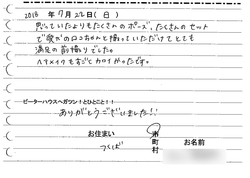 2018年 7月 22日(日)
思っていたよりもたくさんのポーズ、たくさんのセット
で撮っていただけてとても
満足の前撮りでした。
ヘアメイクもすごくカワイかったです。
ピーターハウスへガツン!とひとこと!!
ありがとうございました!!
お住まい
つくば
市
町
村
お名前